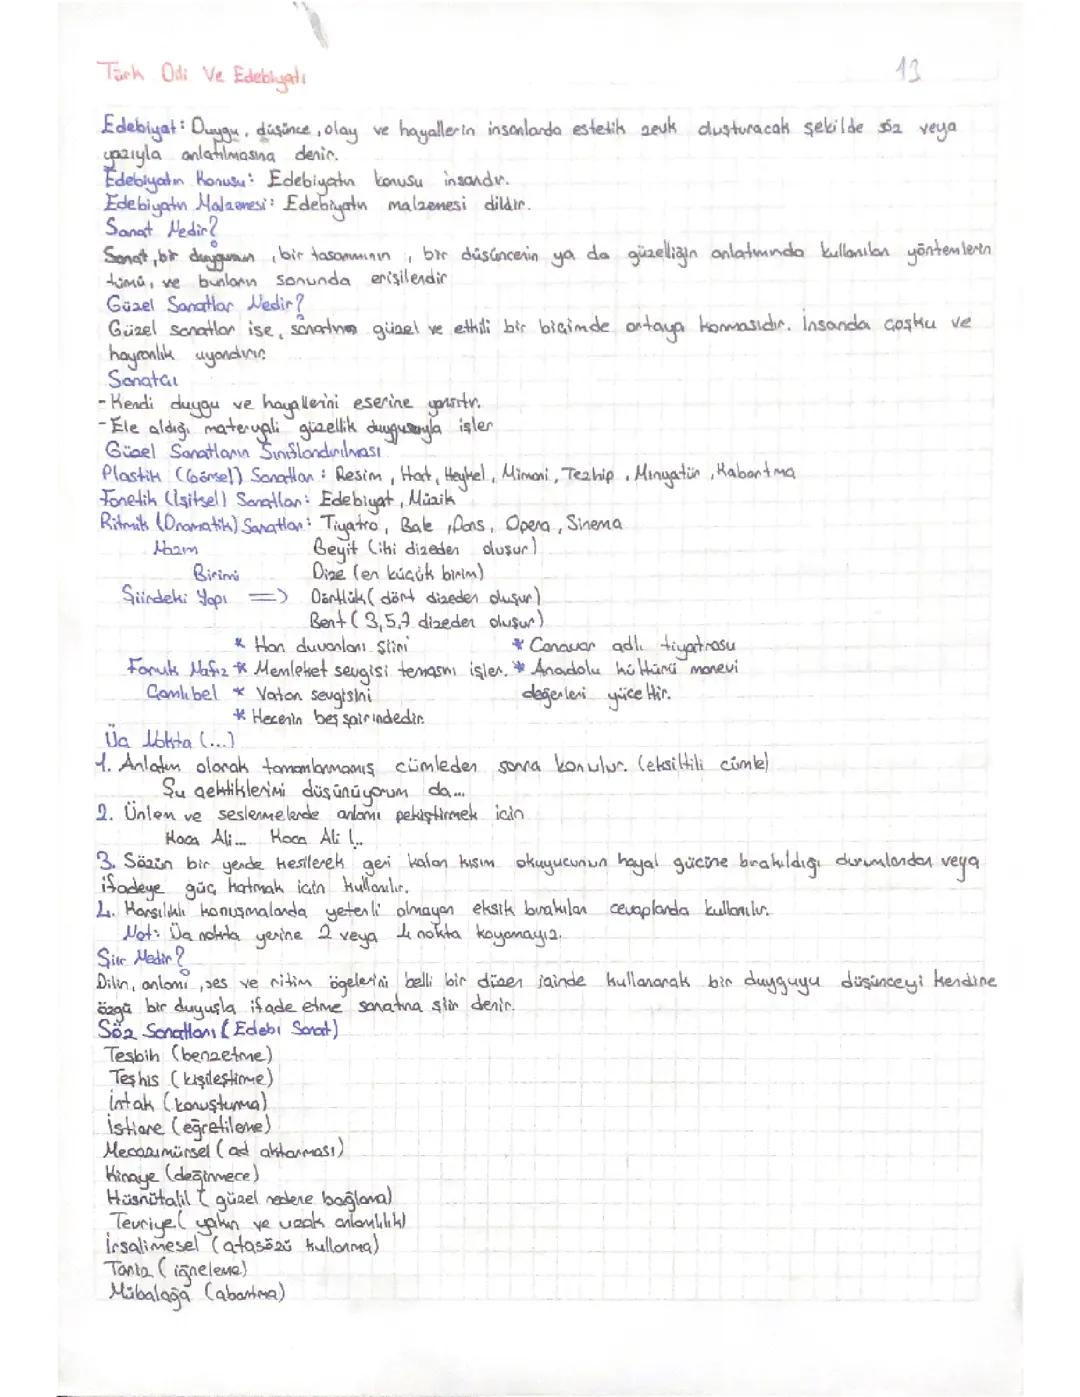 Türk Dili Ve Edebiyatı
13
Edebiyat: Duygu, düşünce, olay ve hayallerin insanlarda estetik zevk oluşturacak şekilde söz veya
yazıyla anlatılmasına denir.
Edebiyatın Konusu: Edebiyatın konusu insandır.
Edebiyatın Malzemesi: Edebiyatın malzemesi dildir.
Sanat Nedir?
Sanat, bir duygunun, bir tasarımının, bir düşüncenin ya da güzelliğin anlatımında kullanılan yöntemlerin
tümü, ve bunların sonunda erişilendir
Güzel Sanatlar Nedir?
Güzel sanatlar ise, sanatın güzel ve etkili bir biçimde ortaya konmasıdır. İnsanda coşku ve
hayranlık uyandırır.
Sanatçı
- Kendi duygu ve hayallerini eserine yansıtır.
- Ele aldığı materyali güzellik duygusuyla işler
Güzel Sanatların Sınıflandırılması
Plastik (Görsel) Sanatlar: Resim, Hat, Heykel, Mimari, Tezhip, Minyatür, Kabartma
Fonetik (İşitsel) Sanatlar: Edebiyat, Müzik
Ritmik (Dramatik) Sanatlar: Tiyatro, Bale, Dans, Opera, Sinema
Nazım Beyit (iki dizeden oluşur)
Birimi Dize (en küçük birim)
Şiirdeki Yapı => Dörtlük (dört dizeden oluşur)
Bent (3,5,7 dizeden oluşur)
* Han duvarları şiiri * Canavar adlı tiyatrosu
Faruk Nafiz * Memleket sevgisi temasını işler. * Anadolu kültürü manevi
Çamlıbel * Vatan sevgisini değerleri yüceltir.
* Hecenin beş şairindedir.
Üç Nokta (...)
1. Anlatım olarak tamamlanmamış cümleden sonra konulur. (eksiltili cümle)
Şu çektiklerimi düşünüyorum da...
2. Ünlem ve seslenmelerde anlamı pekiştirmek için
Koca Ali... Koca Ali!..
3. Sözün bir yerde kesilerek geri kalan kısım okuyucunun hayal gücüne bırakıldığı durumlardan veya
ifadeye güç katmak için kullanılır.
4. Karşılıklı konuşmalarda yeterli olmayan eksik bırakılan cevaplarda kullanılır.
Not: Üç nokta yerine 2 veya 4 nokta koyamayız.
Şiir Nedir?
Dilin, anlamı, ses ve ritim ögelerini belli bir düzen içinde kullanarak bir duyguyu düşünceyi kendine
özgü bir duyuşla ifade etme sanatına şiir denir.
Söz Sanatları (Edebi Sanat)
Teşbih (benzetme)
Teşhis (kişileştirme)
İntak (konuşturma)
İstiare (eğretileme)
Mecazımürsel (ad aktarması)
Kinaye (değinmece)
Hüsnütalil (güzel nedene bağlama)
Tevriye (yakın ve uzak anlamlılık)
İrsalimesel (atasözü kullanma)
Tariz (iğneleme)
Mübalağa (abartma)